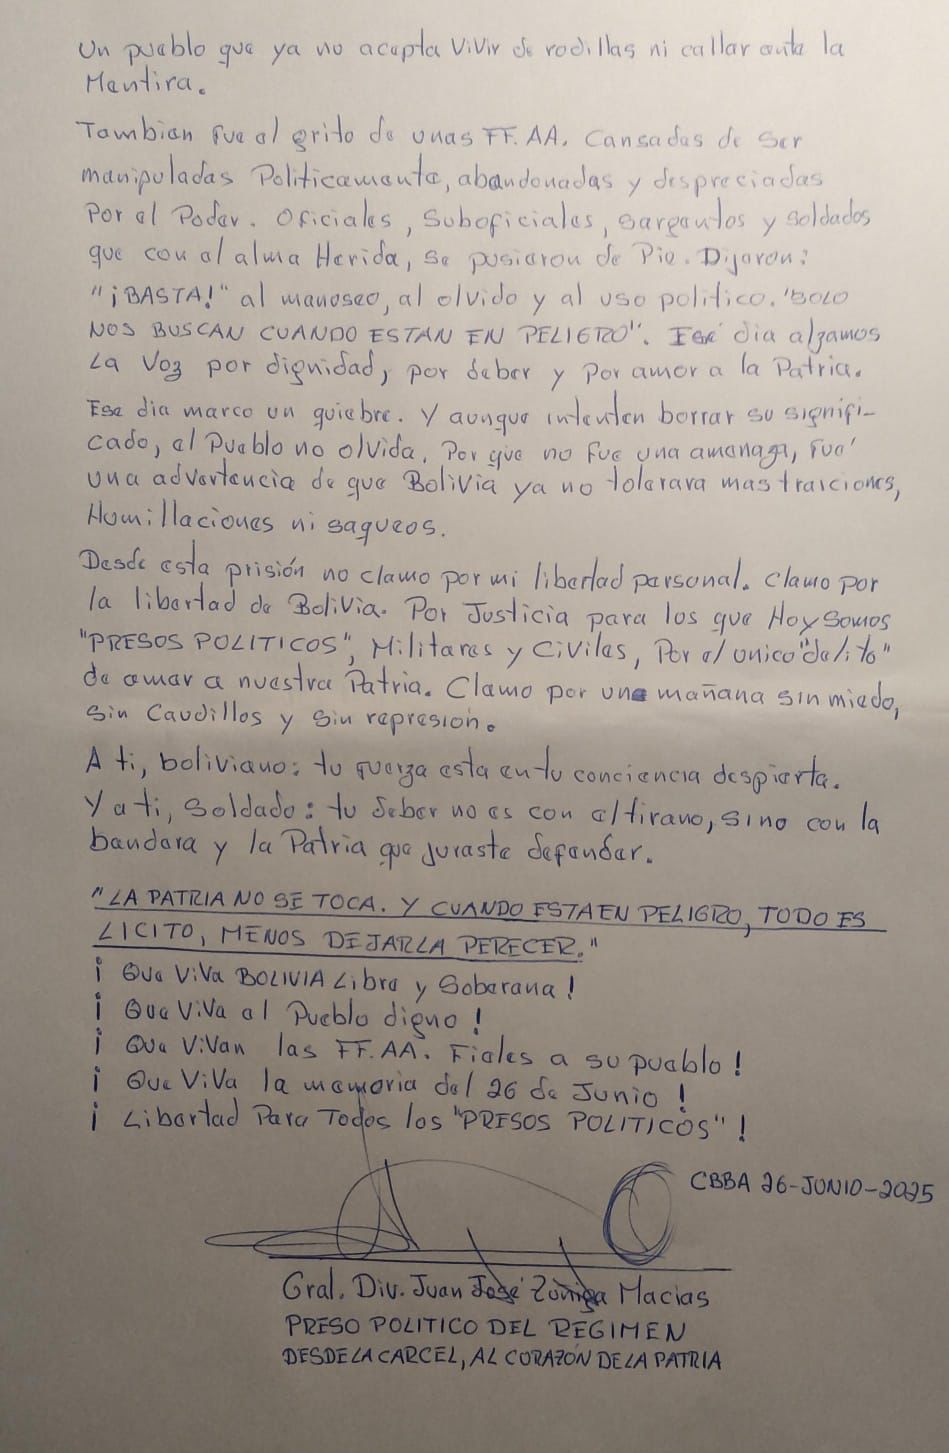 Un pueblo que ya no acepta vivir de rodillas ni callar ante la
Mentira.
Tambien fue el grito de unas FF.AA. Cansadas de ser
manipuladas Politicamente, abandonadas y despreciadas
Por el Poder. Oficiales, Suboficiales, sargentos y soldados
que con el alma Herida, se pusieron de Pie. Dijeron:
"¡BASTA!" al manoseo, al olvido y al uso politico. "SOLO
NOS BUSCAN CUANDO ESTAN EN PELIGRO". Ese dia alzamos
La Voz por dignidad, por deber y Por amor a la Patria.
Ese dia marco un quiebre. Y aunque intenten borrar su signifi-
cado, el Pueblo no olvida. Por que no fue una amenaza, fue
una advertencia de que Bolivia ya no tolerara mas traiciones,
Humillaciones ni saqueos.
Desde esta prisión no clamo por mi libertad personal. Clamo por
la libertad de Bolivia. Por Justicia para los que Hoy somos
"PRESOS POLITICOS", Militares y Civiles, Por el unico "delito"
de amar a nuestra Patria. Clamo por una mañana sin miedo,
sin Caudillos y sin represion.
A ti, boliviano: tu fuerza esta en tu conciencia despierta.
Y a ti, soldado: tu deber no es con el tirano, sino con la
bandera y la Patria que juraste defender.
"LA PATRIA NO SE TOCA. Y CUANDO ESTA EN PELIGRO, TODO ES
LICITO, MENOS DEJARLA PERECER."
¡ Que Viva BOLIVIA Libre y Soberana!
¡ Que Viva el Pueblo digno!
¡ Que Vivan las FF.AA. Fieles a su pueblo!
¡ Que Viva la memoria del 26 de Junio!
¡ Libertad Para Todos los "PRESOS POLITICOS"!
CBBA 26-JUNIO-2025
Gral. Div. Juan José Zúñiga Macias
PRESO POLITICO DEL REGIMEN
DESDE LA CARCEL, AL CORAZÓN DE LA PATRIA